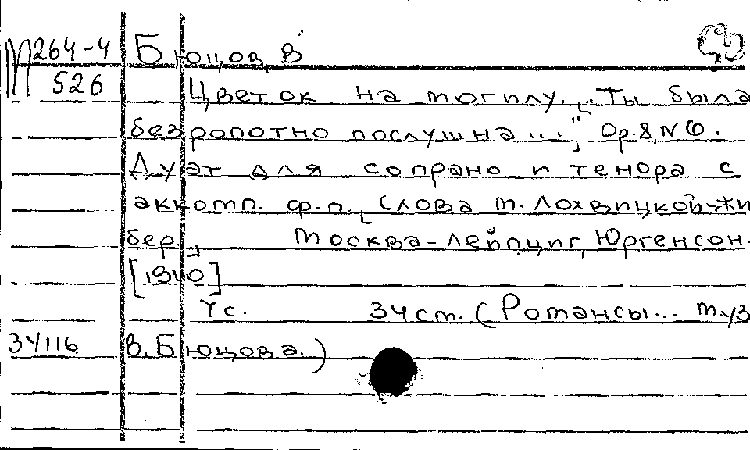 М264-4 Бюцов, В
526 Цветок на могилу. „Ты была
безропотно послушна...", Ор. 8, N 6.
Дуэт для сопрано и тенора с
аккомп. ф.п. [Слова М. Лохвицкой-Жи
бер] Москва-Лейпциг, Юргенсон.
[1910]
7 с. 34 см. (Романсы... муз
34116 В. Бюцова.)